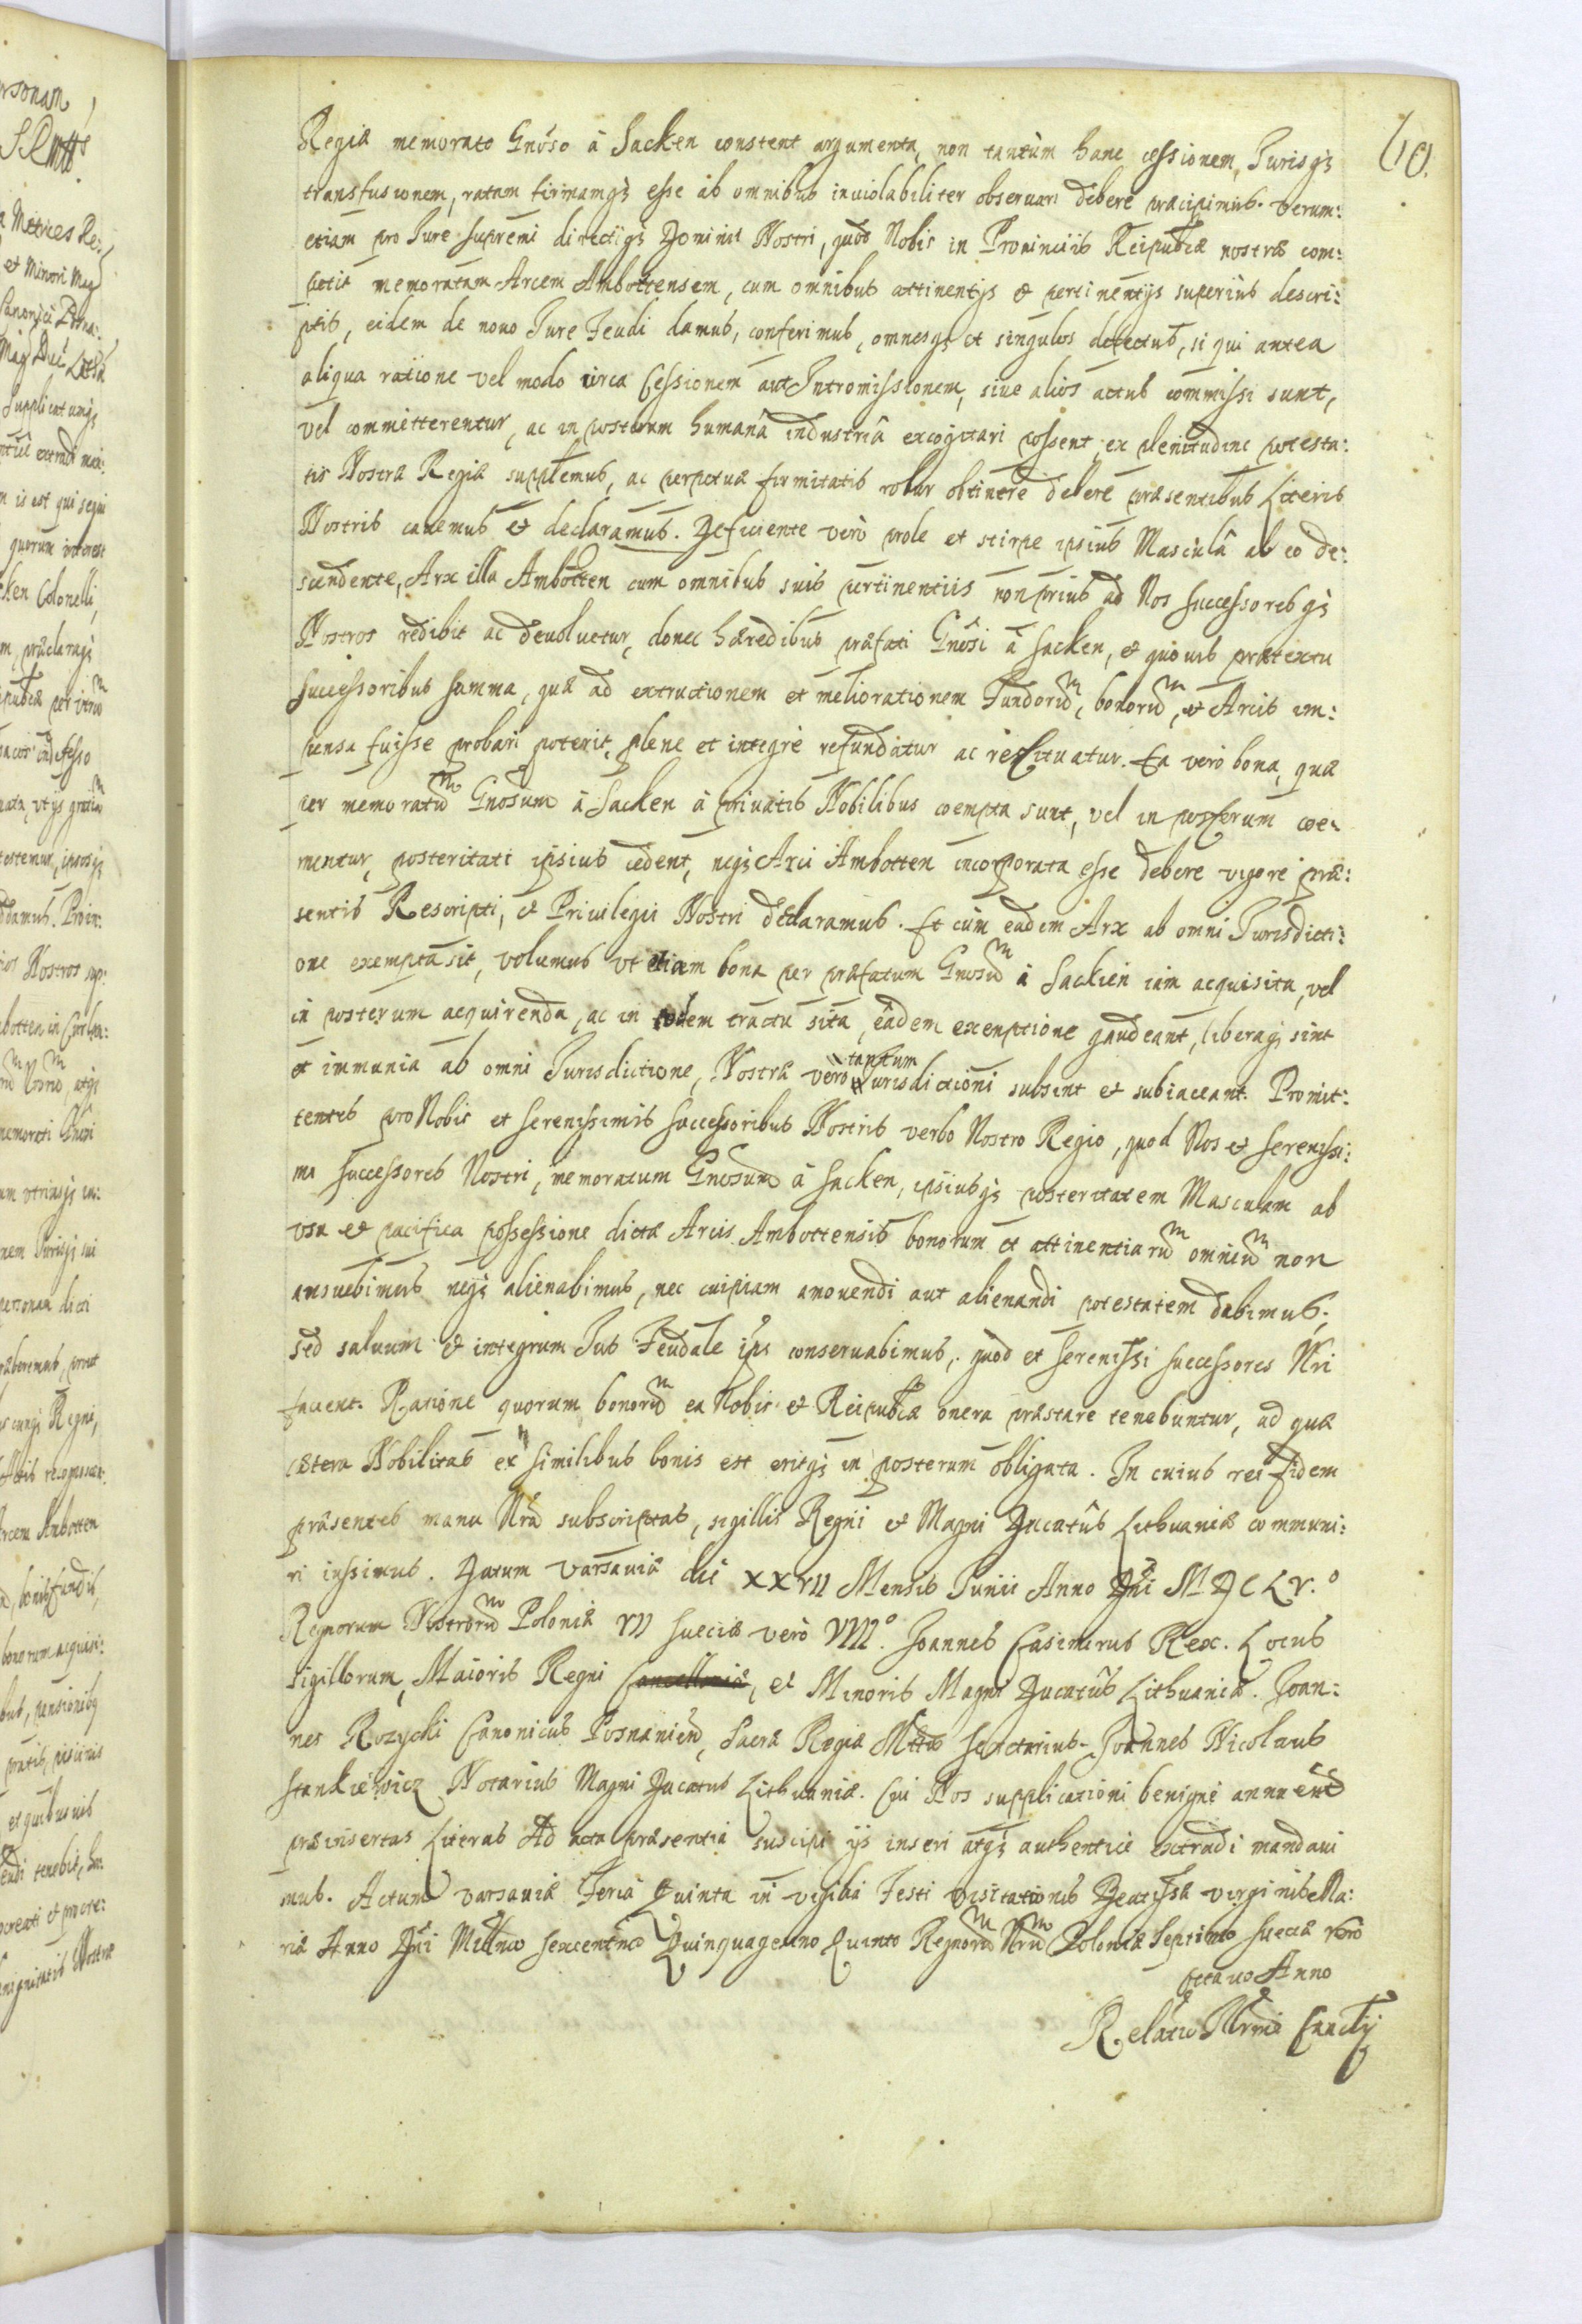 60.
Regiæ memorato Gnoso à Sacken constent argumenta, non tantùm hanc cessionem, Jurisq;
transfusionem, ratam firmamq; esse ab omnibus inviolabiliter observari debere præcipimus. Verum:
etiam pro Jure supremi directiq; Dominii Nostri, quod Nobis in Provinciis Reipublcæ nostræ com:
petit memoratam Arcem Ambottensem, cum omnibus attinentijs & pertinentijs superius descri:
ptis, eidem de novo Jure Feudi damus, conferimus, omnesq; et singulos defectus, si qui antea
aliqua ratione vel modo circa Cessionem aut Intromissionem, sive alios actus commissi sunt,
vel committerentur, ac in posterum humanâ industriâ excogitari possent, ex plenitudine potesta:
tis Nostræ Regiæ supplemus, ac perpetuæ firmitatis robur obtinere debere præsentibus Literis
Nostris cavemus & declaramus. Deficiente verò prole et stirpe ipsius Masculâ ab eo de:
scendente, Arx illa Ambotten cum omnibus suis pertinentiis non prius ad Nos successoresq;
Nostros redibit ac devolvetur, donec hæredibus præfati Gnosi à Sacken, & quovis prætextu
successoribus summa, quæ ad extructionem et meliorationem Fundorum, bonorum, & Arcis im:
pensa fuisse probari poterit, plene et integrè refundatur ac restituatur. Ea verò bona, quæ
per memoratum Gnosum à Sacken à privatis Nobilibus coempta sunt, vel in posterum coe:
mentur, posteritati ipsius cedent, neq; Arci Ambotten incorporata esse debere vigore præ:
sentis Rescripti, & Privilegii Nostri declaramus. Et cùm eadem Arx ab omni Jurisdicti:
one exempta sit, volumus ut etiam bona per præfatum Gnosum à Sacken iam acquisita, vel
in posterum acquirenda, ac in eodem tractu sita, eâdem exemptione gaudeant, liberaq; sint
et immunia ab omni Jurisdictione, Nostræ verò tantum Jurisdictioni subsint & subiaceant. Promit:
tentes pro Nobis et Serenissimis Successoribus Nostris verbo Nostro Regio, quod Nos & Serenissi:
mi successores Nostri, memoratum Gnosum à Sacken, ipsiusq; posteritatem Masculam ab
usu & pacifica possessione dictæ Arcis Ambottensis bonorum et attinentiarum omnium non
amovebimus neq; alienabimus, nec cuipiam amovendi aut alienandi potestatem dabimus;
sed salvum & integrum Jus Feudale ipsi conservabimus, quod et Serenissi successores Nri
facient. Ratione quorum bonorum ea Nobis & Reipublcæ onera præstare tenebuntur, ad quæ
cætera Nobilitas ex similibus bonis est eritq; in posterum obligata. In cuius rei fidem
præsentes manu Nrâ subscriptas, sigillis Regni & Magni Ducatûs Lithuaniæ communi:
ri iussimus. Datum Varsaviæ die XXVII Mensis Junii Anno Dni MDCLV.º
Regnorum Nostrorum Poloniæ VII Sueciæ verò VIIIº. Joannes Casimirus Rex. Locus
sigillorum, Maioris Regni Cancellariæ, et Minoris Magni Ducatûs Lithuaniæ. Joan:
nes Rozycki Canonicus Posnanien, Sacræ Regiæ Mttis Secretarius. Joannes Nicolaus
Stankiewicz Notarius Magni Ducatus Lithuaniæ. Cui Nos supplicationi benignè annuend
præinsertas Literas Ad acta præsentia suscipi ijs inseri atq; authenticè extradi mandavi
mus. Actum Varsaviæ Feriâ Quinta in vigilia Festi Visitationis Beatissæ Virginis Ma:
riæ Anno Dni Millmo Sexcentmo Quinquagesimo Quinto Regnorum Nrum Poloniæ Septimo Sueciæ verò
octavo Anno
Relatio